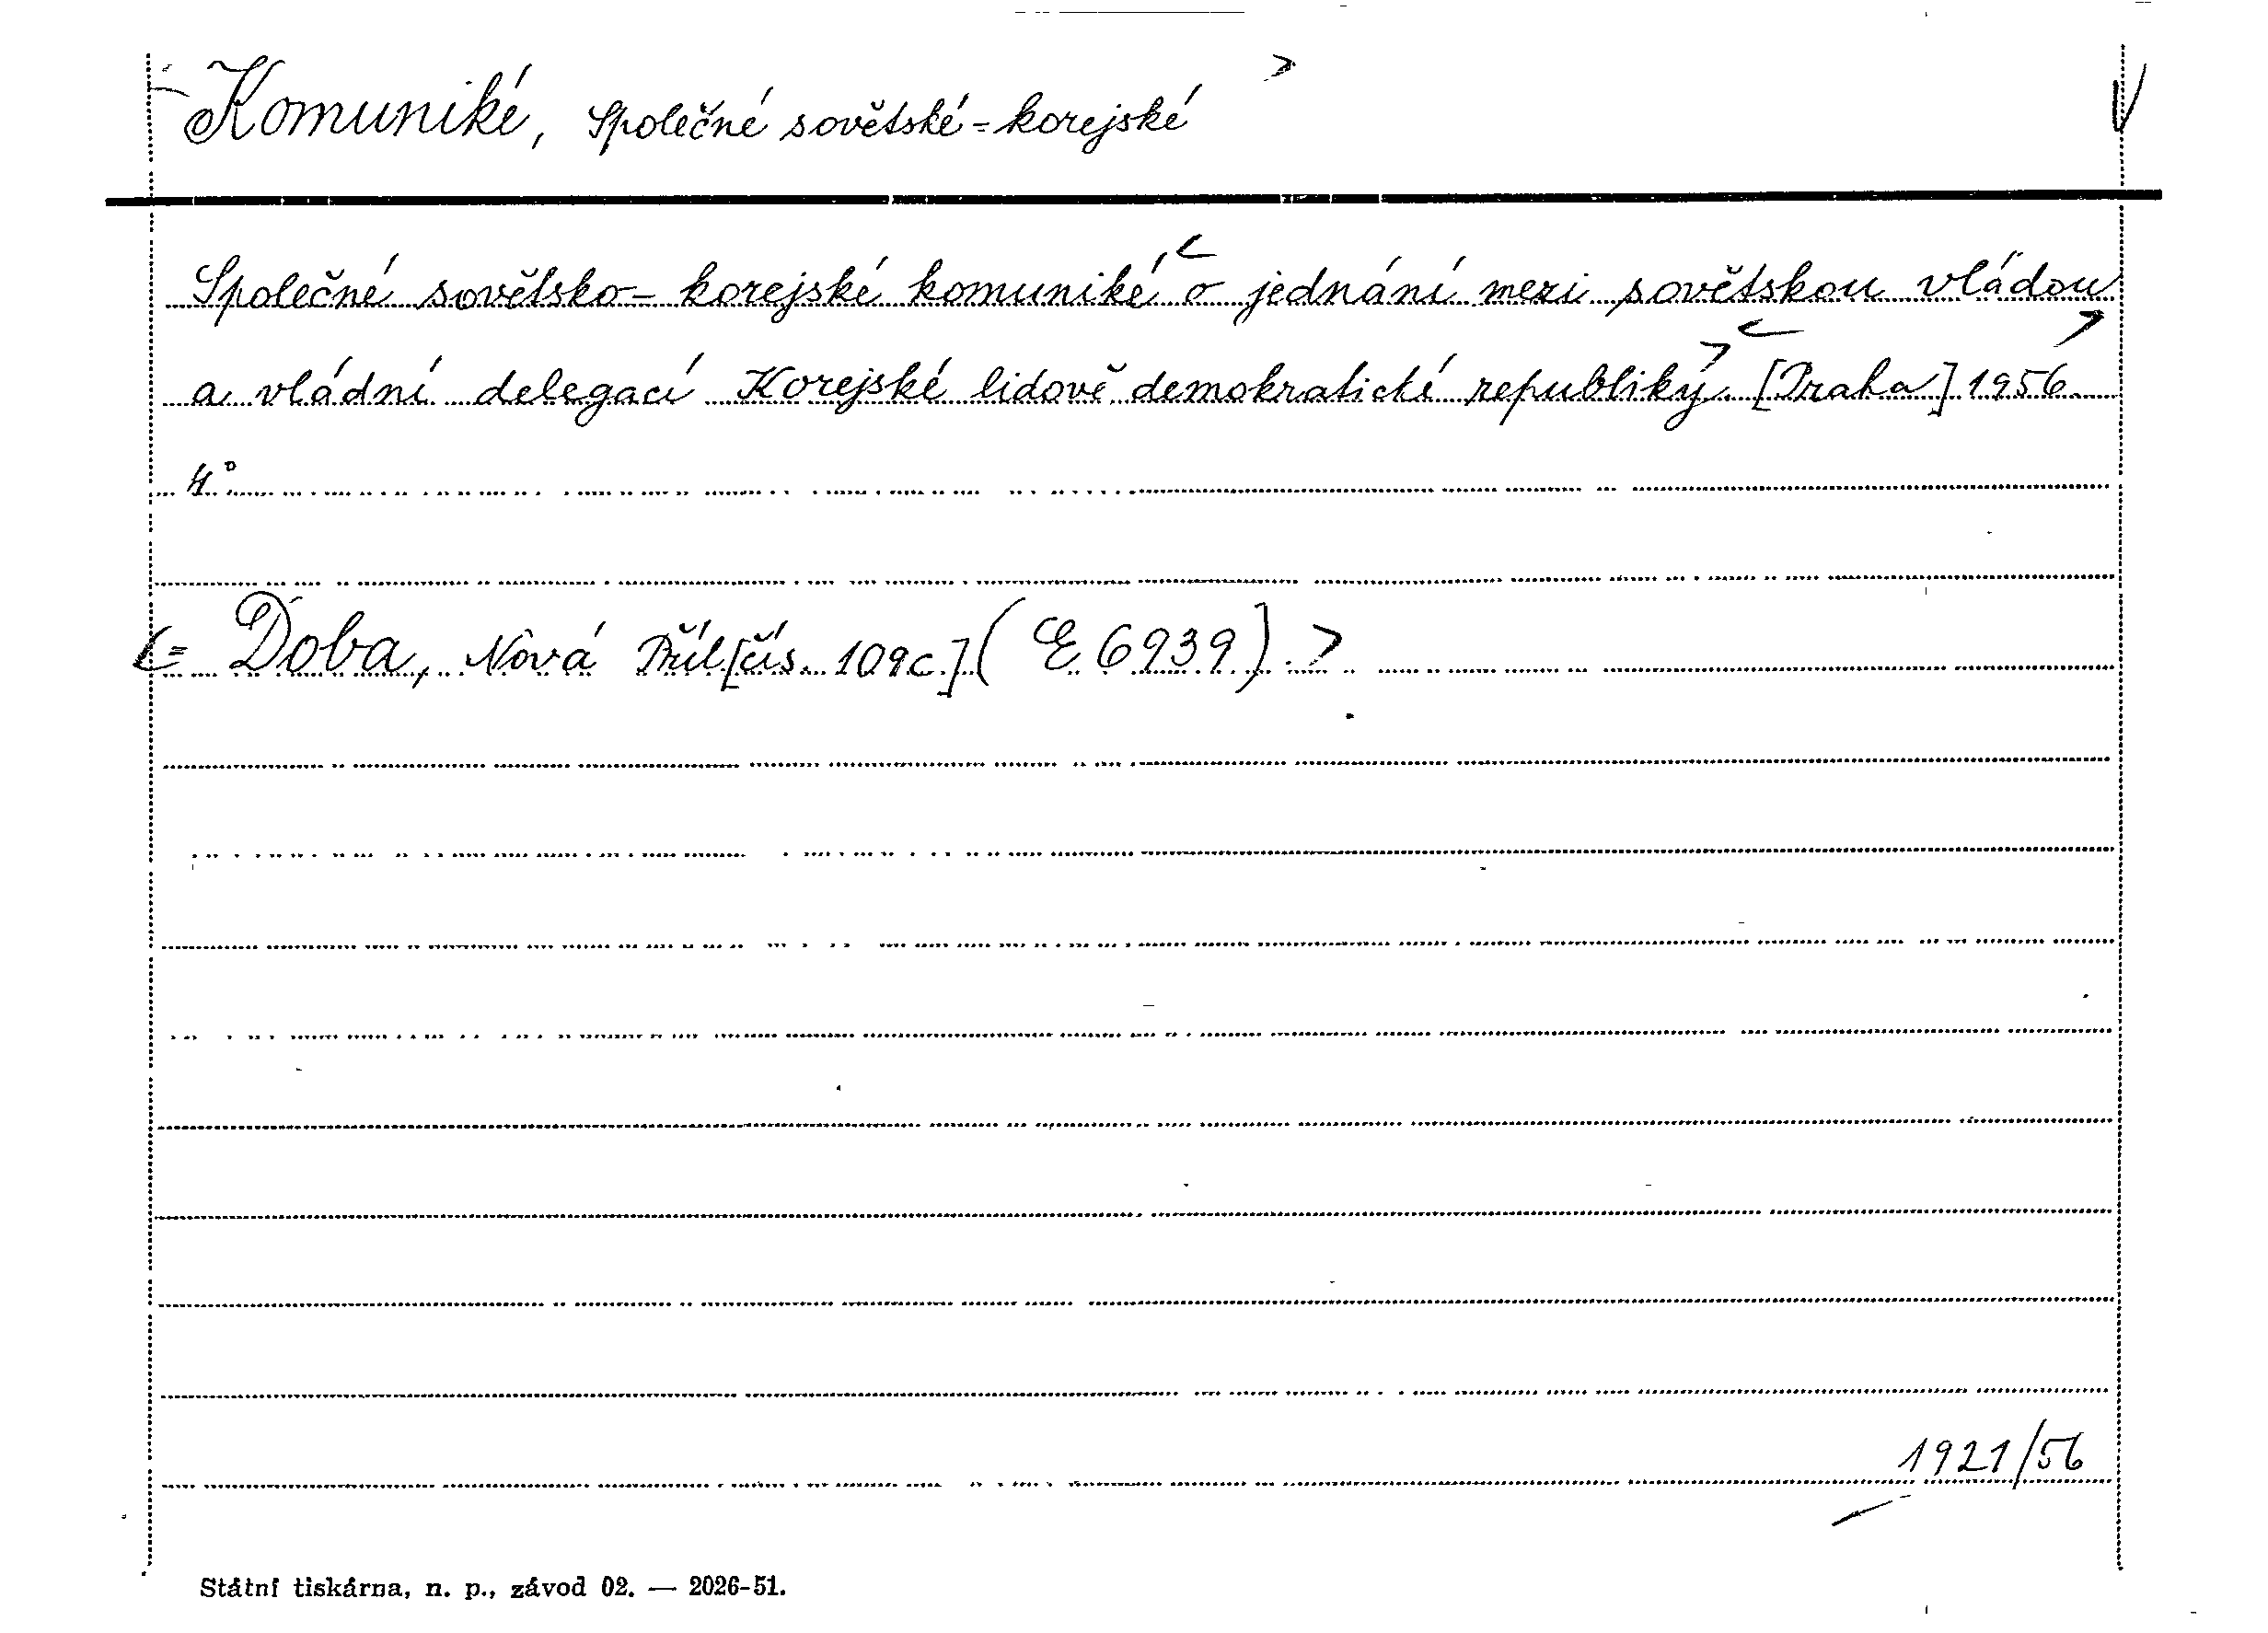 Komuniké, Společné sovětské-korejské
Společné sovětsko-korejské komuniké o jednání mezi sovětskou vládou
a vládní delegací Korejské lidově demokratické republiky. [Praha] 1956.
4°
= Doba, Nová Příl[čís. 109c.] (E 6939).
1921/56
Státní tiskárna, n. p., závod 02. — 2026-51.